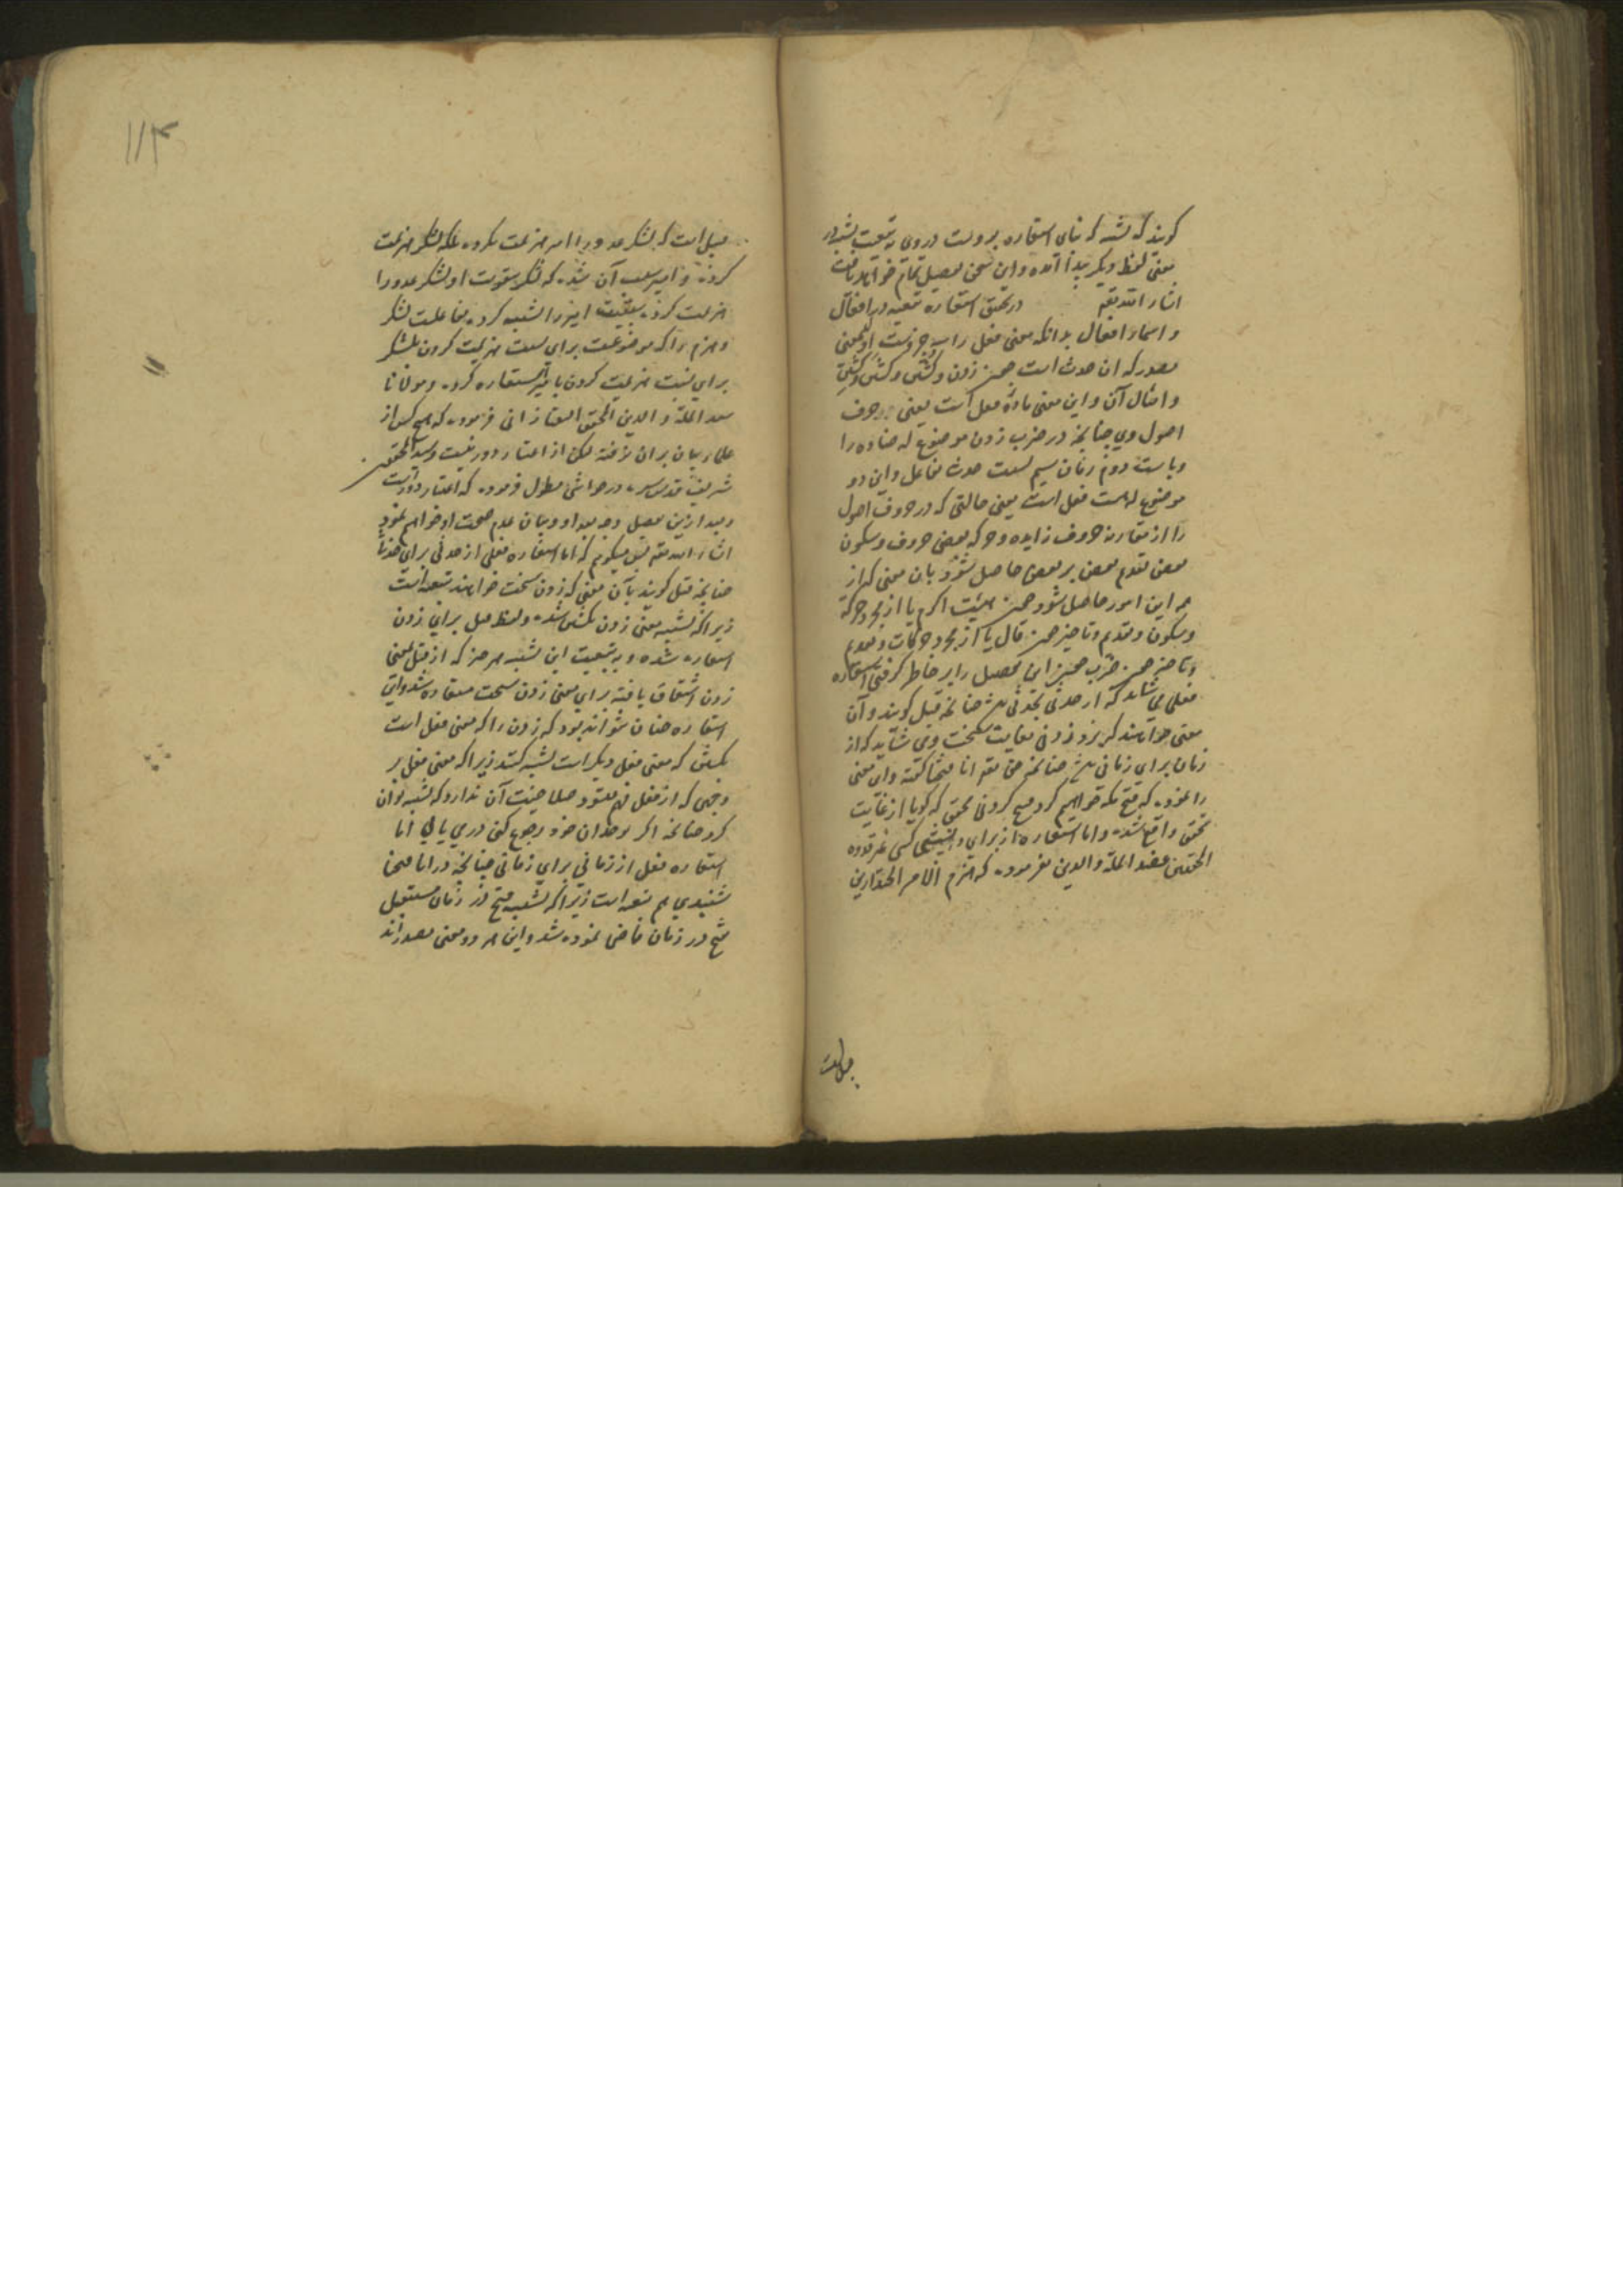 کویند که تشبه که بنای استعاره بروست در وی به تبعیت تشبه در
معنی لفظ دیکر پیدا آمده و این سخن تفصیل تمام خواهد یافت
انشاء الله تعالی در تحقیق استعاره تبعیه در افعال
و اسماء افعال بدانکه معنی فعل را سه جزوست اول معنی
مصدر که ان حدث است چون زدن و کشتن و
و امثال آن و این معنی ماده فعل است یعنی حروف
اصول وی چنانچه در ضرب زدن موضوع له ضاد و را
و باست دوم زمان سیم نسبت حدث بفاعل و این دو
موضوع له هیئت فعل است یعنی حالتی که در حروف اصول
را از مقارنه حروف زایده و حرکه بعضی حروف و سکون
بعضی تقدم بعضی بر بعضی حاصل شود بان معنی که از
همه این امور حاصل شود چون هیئت اکرم یا از مجرد حرکه
و سکون و تقدم و تاخیر چون قال یا از مجرد حرکات و تقدم
و تاخیر چون ضرب چون این تفصیل را بر خاطر کرفتی استعاره
فعلی می شاید که از حدثی بحدثی باشد چنانچه قتل کویند و آن
معنی خواهند که بزد زدنی بغایت سخت و می شاید که از
زمان برای زمانی باشد چنانچه حق تعالی انا فتحنا کفته و این معنی
را نموده که فتح مکه خواهیم کرد فتح کردنی محقق که کویا از غایت
تحقق واقع شده و اما استعاره از برای نسبتی کسی غیر قدوه
المحققین عضد الملة و الدین نفرموده که هزم الامیر الجند ازین
قبیل است
قبیل است که لشکر عدو را امیر هزیمت نکرده بلکه لشکر هزیمت
کرده و امیر سبب آن شده که لشکر بتقویت او لشکر عدو را
هزیمت کرده سببیت امیر را تشبیه کرده بفاعلیت لشکر
و هزم را که موضوعست برای نسبت هزیمت کردن بلشکر
برای نسبت هزیمت کردن بامیر استعاره کرده و مولانا
سعد الملة و الدین المحقق التفتازانی فرموده که هیچ کس از
علماء بیان بر ان نرفته لیکن از اعتبار دور نیست و سید المحققین
شریف قدس سره در حواشی مطول فرموده که اعتبار دورست
و بعد ازین تفصیل وجه بعد او و بیان عدم صحت او خواهم نمود
انشاء الله تعالی پس میکویم که اما استعاره فعلی از حدثی برای حدثی
چنانچه قتل کویند بآن معنی که زدن سخت خواهند تبعیه است
زیرا که تشبیه معنی زدن بکشتن شده و لفظ قتل برای زدن
استعاره شده و به تبعیت این تشبه هر چیز که از قتل بمعنی
زدن اشتقاق یافته برای معنی زدن سخت مستعار شد و این
استعاره چنان نتواند بود که زدن را که معنی فعل است
بکشتن که معنی فعل دیکر است تشبیه کنند زیرا که معنی فعل بر
وجهی که از فعل فهم میشود صلاحیت آن ندارد که تشبیه توان
کرد چنانچه اکر بوجدان خود رجوع کنی دریابی اما
استعاره فعل از زمانی برای زمانی چنانچه در انا فتحنا
شنیدی هم تبعیه است زیرا که تشبیه فتح در زمان مستقبل
فتح در زمان ماضی نموده شد و این هر دو معنی مصدر اند